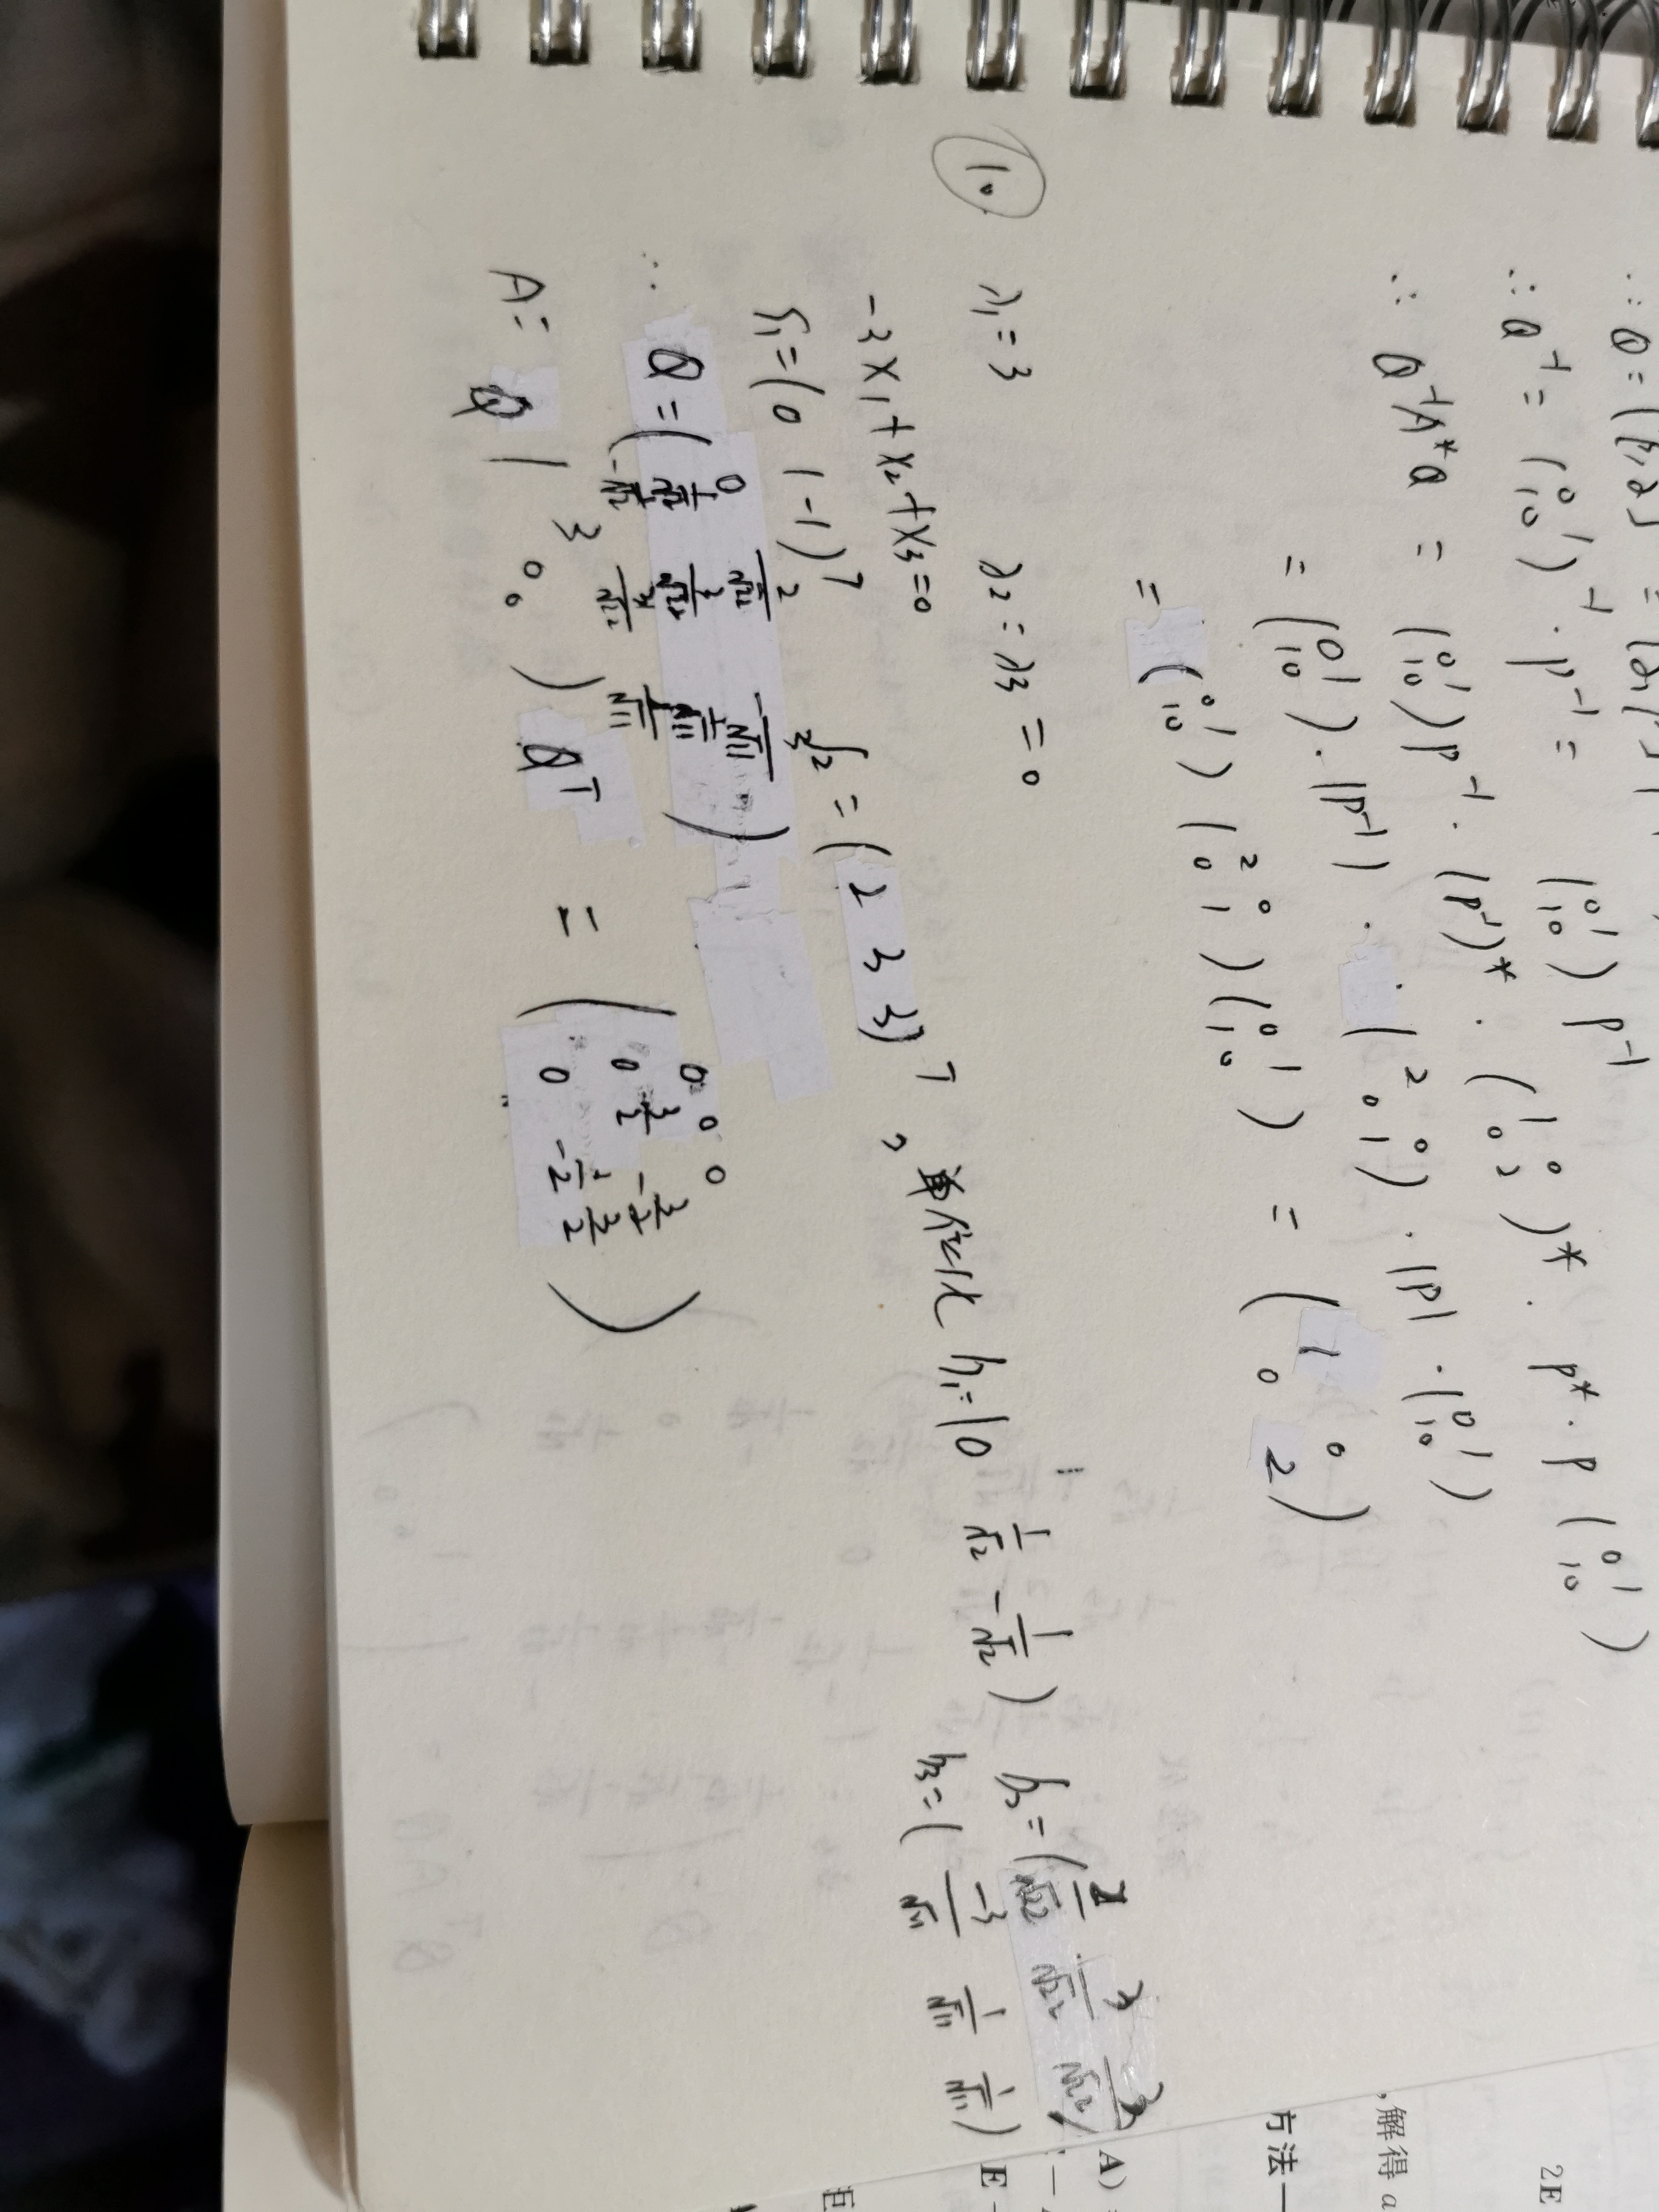 ∴ Q = (
∴ Q⁻¹ = (0 1; 1 0)⁻¹ · P⁻¹ = (0 1; 1 0) P⁻¹
∴ Q⁻¹A*Q = (0 1; 1 0) P⁻¹ · (P⁻¹)* · (1 0; 0 2)* · P* · P (0 1; 1 0)
= (0 1; 1 0) · |P⁻¹| · (2 0; 0 1) · |P| · (0 1; 1 0)
= (0 1; 1 0) (2 0; 0 1) (0 1; 1 0) = (1 0; 0 2)
⑩ λ₁ = 3 λ₂ = λ₃ = 0
-3x₁ + x₂ + x₃ = 0
ξ₁ = (0 1 -1)ᵀ ξ₂ = (2 3 3)ᵀ, 单位化 h₁ = (0 1/√2 -1/√2) h₂ = (2/√22 3/√22 3/√22)
h₃ = (-3/√11 1/√11 1/√11)
∴ Q = (0 2/√22 -3/√11; 1/√2 3/√22 1/√11; -1/√2 3/√22 1/√11)
A = Q (3 0 0) Qᵀ = (0 0 0; 0 3/2 -3/2; 0 -3/2 3/2)
,解得 a
方法一
2E
A)
E -